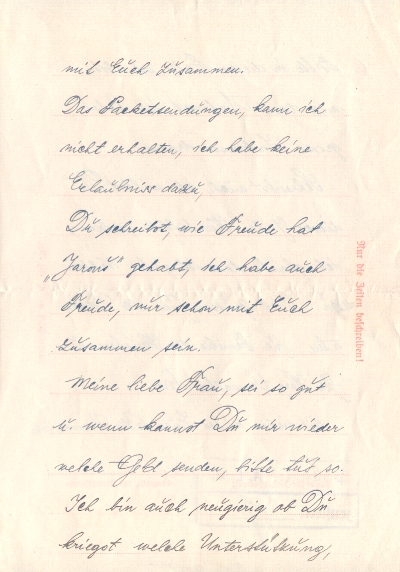 mit Euch zusammen.
Das Packetsendungen, kann ich
nicht erhalten, ich habe keine
Erlaubniss dazu,
Du schreibst, wie Freude hat
„Jarouš" gehabt, ich habe auch
Freude, nur schon mit Euch
zusammen sein.
Meine liebe Frau, sei so gut
u. wenn kannst Du mir wieder
welche Geld senden, bitte tuš so.
Ich bin auch neugierig ob Du
kriegst welche Unterstützung,
Nur die Zeilen beschreiben!